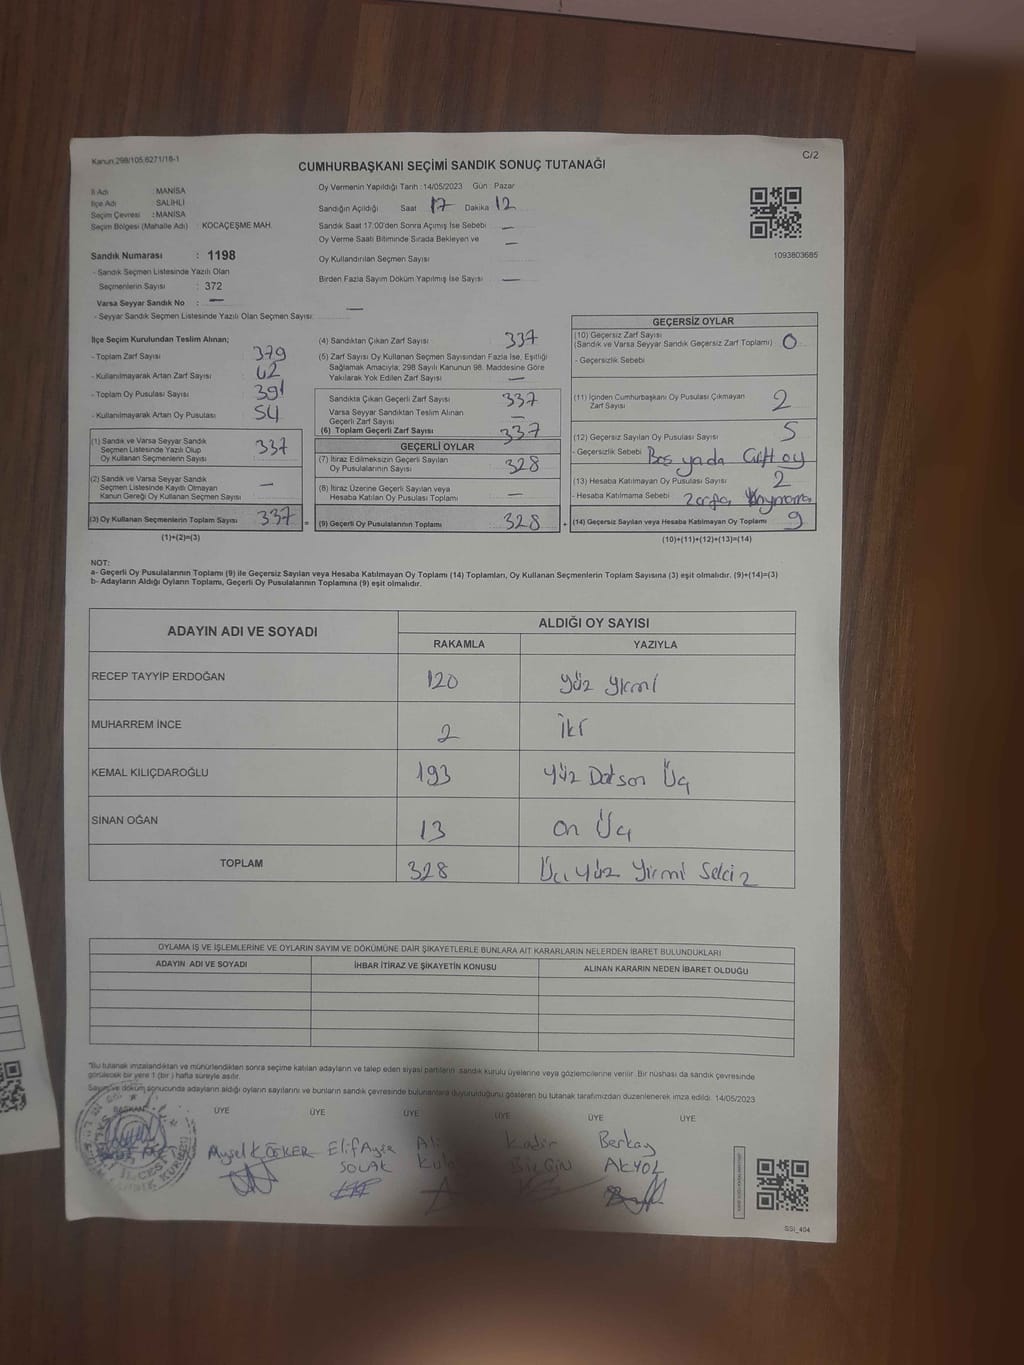 Kanun:298/105,6271/18-1
C/2
CUMHURBAŞKANI SEÇİMİ SANDIK SONUÇ TUTANAĞI
İl Adı : MANİSA
İlçe Adı : SALİHLİ
Seçim Çevresi : MANİSA
Seçim Bölgesi (Mahalle Adı) : KOCAÇEŞME MAH.
Oy Vermenin Yapıldığı Tarih :14/05/2023 Gün : Pazar
Sandığın Açıldığı Saat 17 Dakika 12
Sandık Saat 17:00'den Sonra Açımış İse Sebebi : —
Oy Verme Saati Bitiminde Sırada Bekleyen ve —
Oy Kullandırılan Seçmen Sayısı :
Birden Fazla Sayım Döküm Yapılmış İse Sayısı : —
1093803685
Sandık Numarası : 1198
- Sandık Seçmen Listesinde Yazılı Olan
Seçmenlerin Sayısı : 372
Varsa Seyyar Sandık No : —
- Seyyar Sandık Seçmen Listesinde Yazılı Olan Seçmen Sayısı: —
İlçe Seçim Kurulundan Teslim Alınan;
- Toplam Zarf Sayısı 379
- Kullanılmayarak Artan Zarf Sayısı 42
- Toplam Oy Pusulası Sayısı 391
- Kullanılmayarak Artan Oy Pusulası 54
(1) Sandık ve Varsa Seyyar Sandık
Seçmen Listesinde Yazılı Olup
Oy Kullanan Seçmenlerin Sayısı 337
(2) Sandık ve Varsa Seyyar Sandık
Seçmen Listesinde Kayıtlı Olmayan
Kanun Gereği Oy Kullanan Seçmen Sayısı —
(3) Oy Kullanan Seçmenlerin Toplam Sayısı 337 =
(1)+(2)=(3)
(4) Sandıktan Çıkan Zarf Sayısı 337
(5) Zarf Sayısı Oy Kullanan Seçmen Sayısından Fazla İse, Eşitliği
Sağlamak Amacıyla; 298 Sayılı Kanunun 98. Maddesine Göre
Yakılarak Yok Edilen Zarf Sayısı —
Sandıkta Çıkan Geçerli Zarf Sayısı 337
Varsa Seyyar Sandıktan Teslim Alınan
Geçerli Zarf Sayısı —
(6) Toplam Geçerli Zarf Sayısı 337
GEÇERLİ OYLAR
(7) İtiraz Edilmeksizin Geçerli Sayılan
Oy Pusulalarının Sayısı 328
(8) İtiraz Üzerine Geçerli Sayılan veya
Hesaba Katılan Oy Pusulası Toplamı —
(9) Geçerli Oy Pusulalarının Toplamı 328 +
GEÇERSİZ OYLAR
(10) Geçersiz Zarf Sayısı
(Sandık ve Varsa Seyyar Sandık Geçersiz Zarf Toplamı) 0
- Geçersizlik Sebebi
(11) İçinden Cumhurbaşkanı Oy Pusulası Çıkmayan
Zarf Sayısı 2
(12) Geçersiz Sayılan Oy Pusulası Sayısı 5
- Geçersizlik Sebebi Boş yada Çift oy
(13) Hesaba Katılmayan Oy Pusulası Sayısı 2
- Hesaba Katılmama Sebebi
(14) Geçersiz Sayılan veya Hesaba Katılmayan Oy Toplamı 9
(10)+(11)+(12)+(13)=(14)
NOT:
a- Geçerli Oy Pusulalarının Toplamı (9) ile Geçersiz Sayılan veya Hesaba Katılmayan Oy Toplamı (14) Toplamları, Oy Kullanan Seçmenlerin Toplam Sayısına (3) eşit olmalıdır. (9)+(14)=(3)
b- Adayların Aldığı Oyların Toplamı, Geçerli Oy Pusulalarının Toplamına (9) eşit olmalıdır.
ADAYIN ADI VE SOYADI
ALDIĞI OY SAYISI
RAKAMLA YAZIYLA
RECEP TAYYİP ERDOĞAN 120 yüz yirmi
MUHARREM İNCE 2 iki
KEMAL KILIÇDAROĞLU 193 yüz Doksan Üç
SİNAN OĞAN 13 on Üç
TOPLAM 328 Üç yüz Yirmi Sekiz
OYLAMA İŞ VE İŞLEMLERİNE VE OYLARIN SAYIM VE DÖKÜMÜNE DAİR ŞİKAYETLERLE BUNLARA AİT KARARLARIN NELERDEN İBARET BULUNDUKLARI
ADAYIN ADI VE SOYADI İHBAR İTİRAZ VE ŞİKAYETİN KONUSU ALINAN KARARIN NEDEN İBARET OLDUĞU
"Bu tutanak imzalandıktan ve mühürlendikten sonra seçime katılan adayların ve talep eden siyasi partilerin sandık kurulu üyelerine veya gözlemcilerine verilir. Bir nüshası da sandık çevresinde
görülecek bir yere 1 (bir ) hafta süreyle asılır.
Sayım ve döküm sonucunda adayların aldığı oyların sayılarını ve bunların sandık çevresinde bulunanlara duyurulduğunu gösteren bu tutanak tarafımızdan düzenlenerek imza edildi. 14/05/2023
BAŞKAN ÜYE ÜYE ÜYE ÜYE ÜYE ÜYE
Aysel KÖKER Elif Ayşe Ali Kadir Berkay
SOLAK BİLGİN AKYOL
SSİ_404